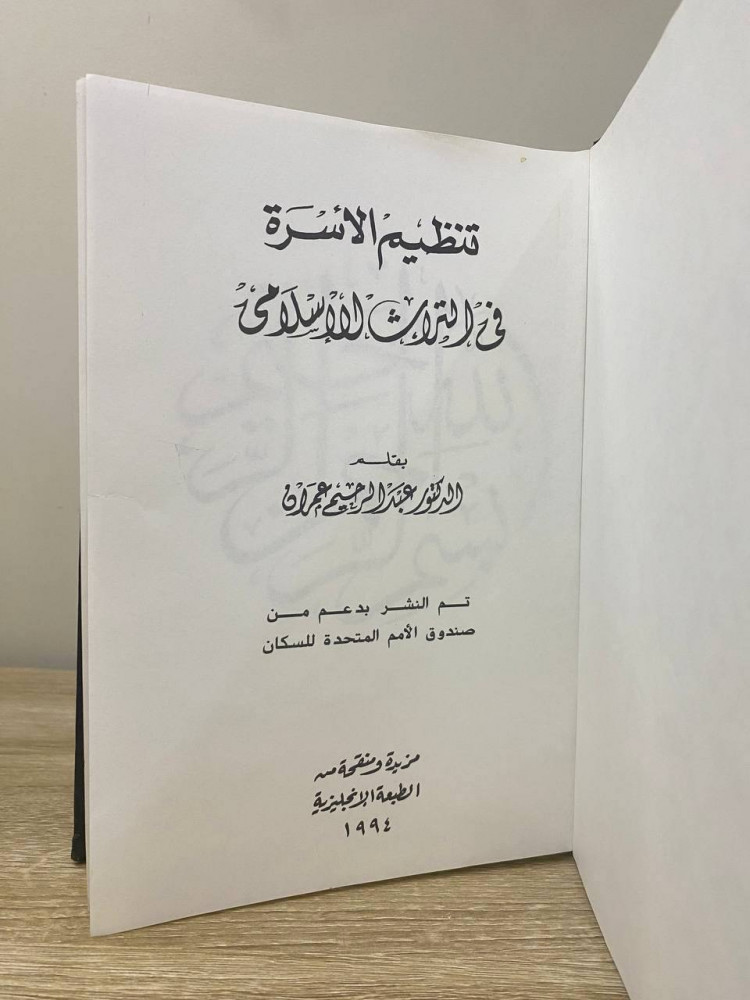 تنظيم الأسرة
في التراث الإسلامي
بقلم
الدكتور عبد الرحيم عمران
تم النشر بدعم من
صندوق الأمم المتحدة للسكان
مزيدة ومنقحة من
الطبعة الإنجليزية
١٩٩٤